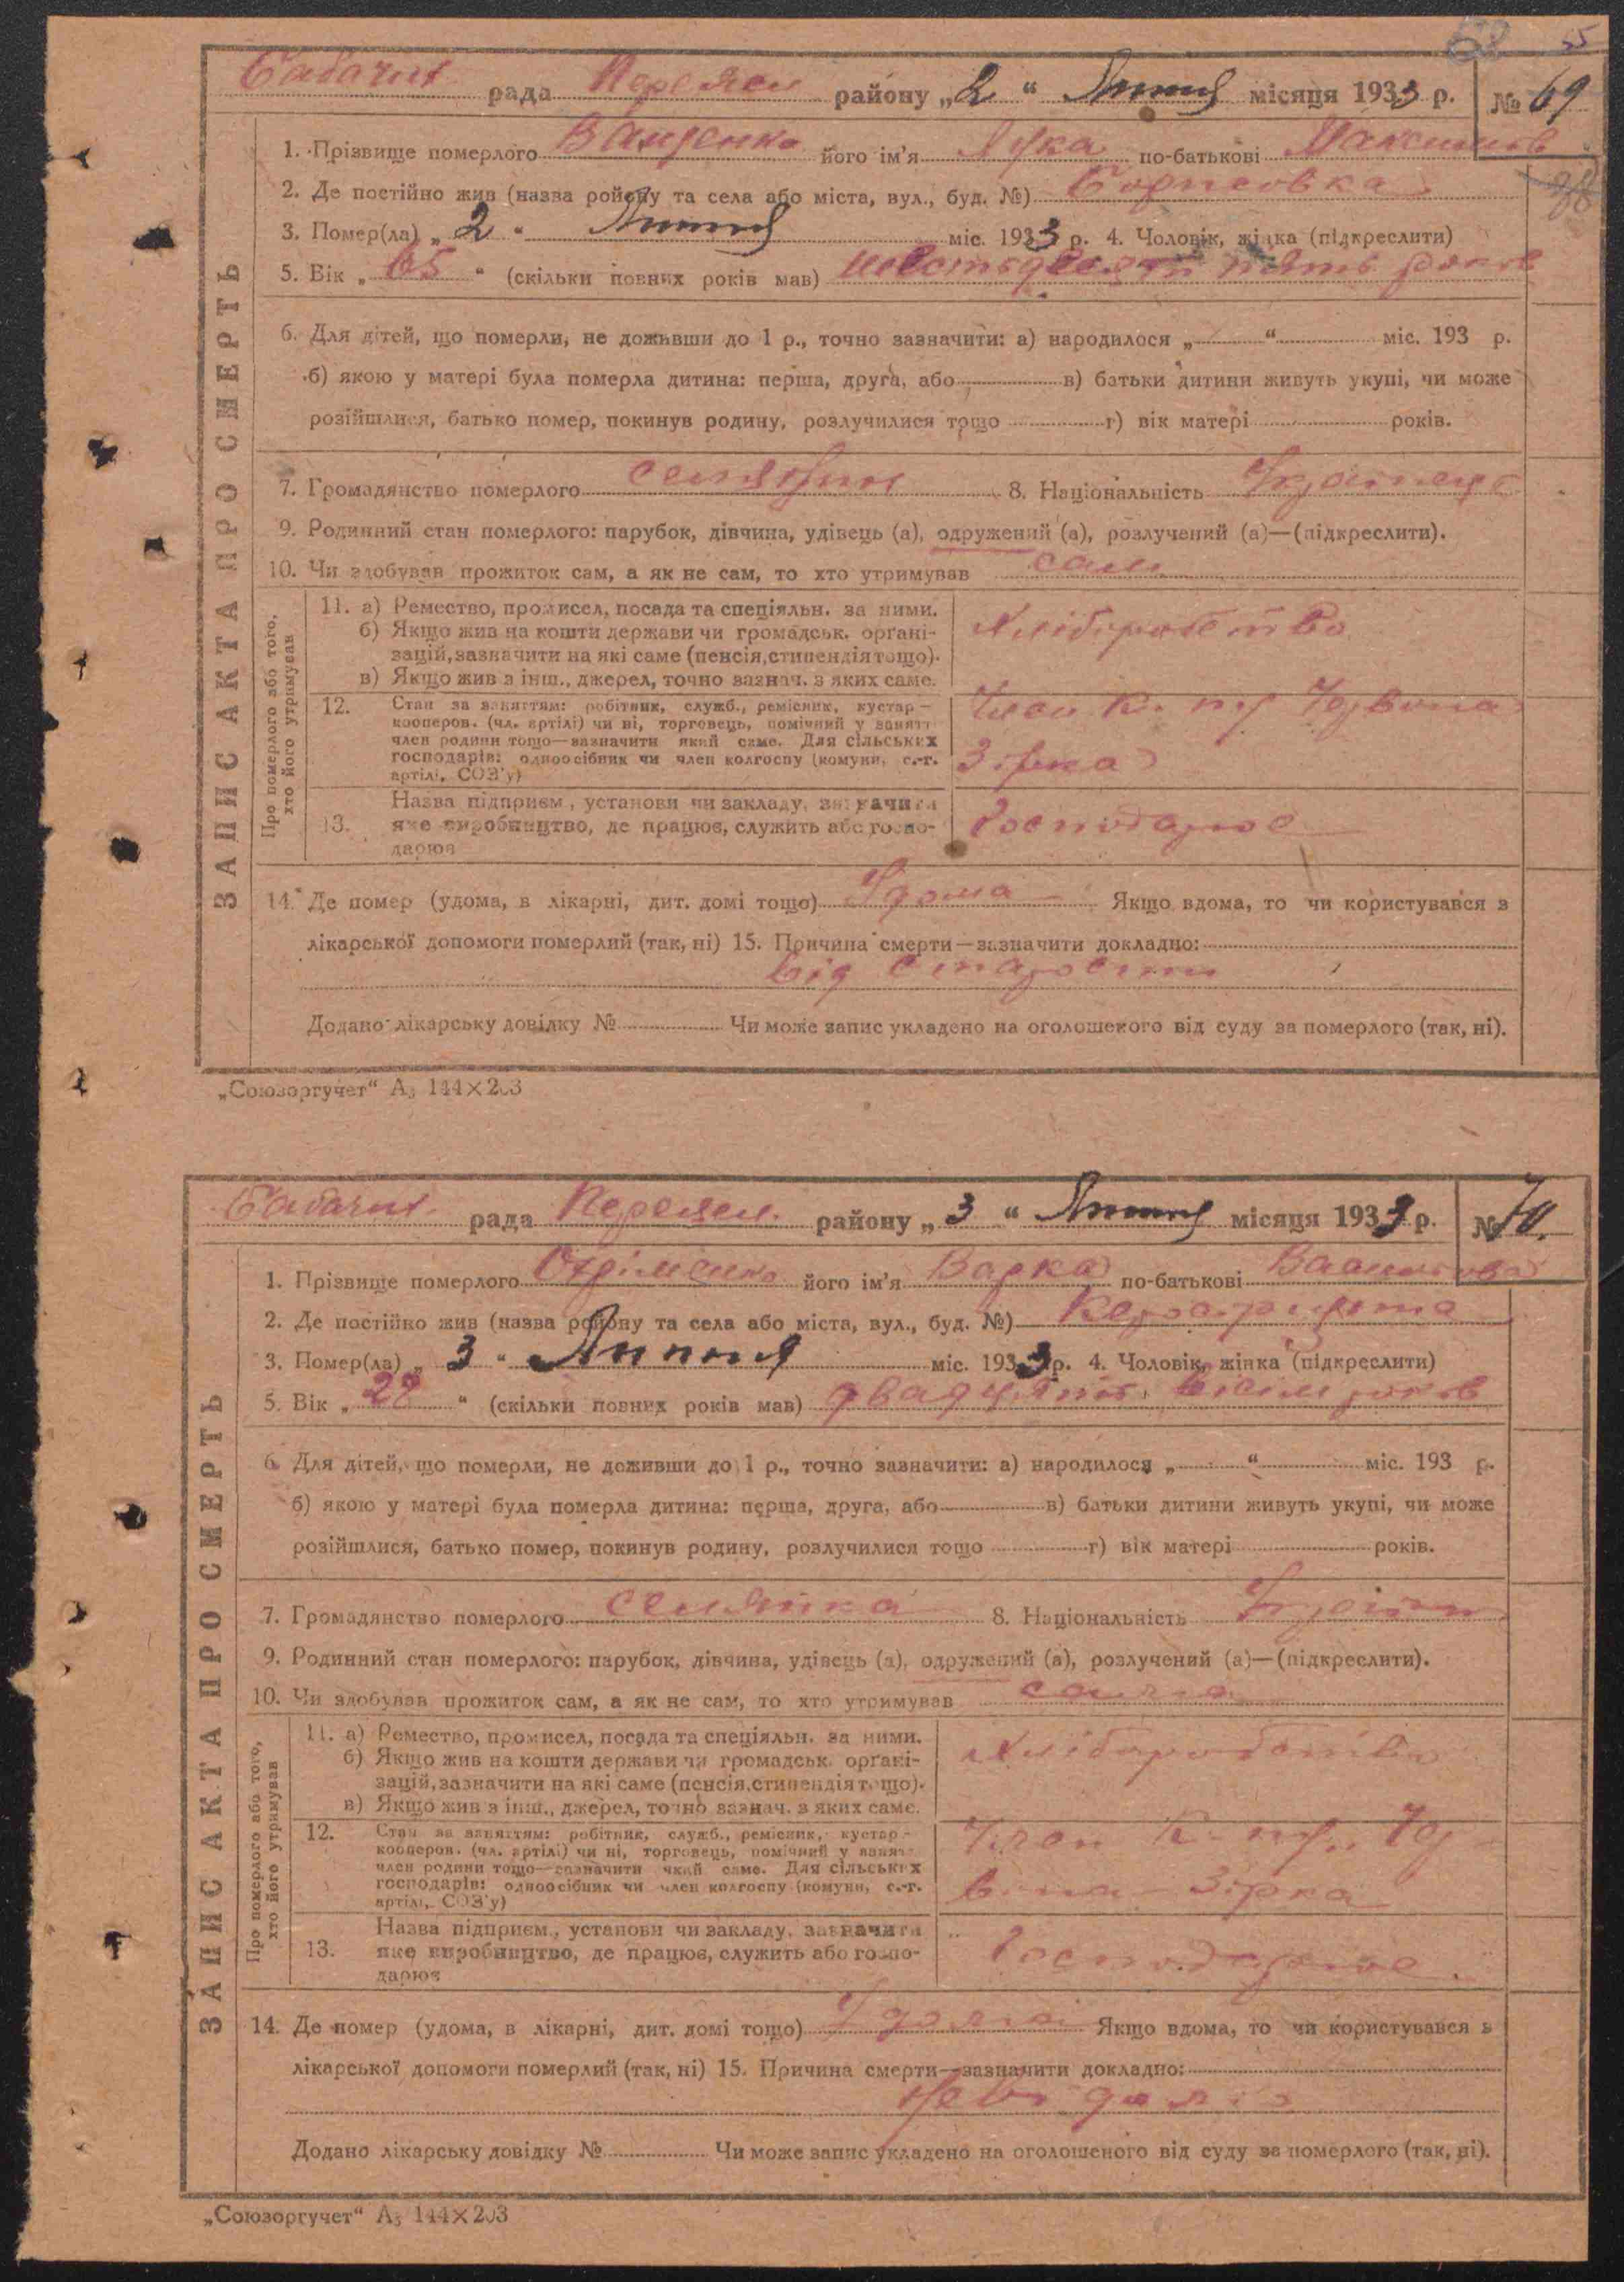 55
Бабачих рада Переясл району „2“ Липня місяця 1933 р. № 69
1. Прізвище померлого Ващенко його ім'я Лука по-батькові Максимов
2. Де постійно жив (назва ройону та села або міста, вул., буд. №) Борисовка
3. Помер(ла) „2“ Липня міс. 1933 р. 4. Чоловік, жінка (підкреслити)
5. Вік „65“ (скільки повних років мав) шестьдесят пять років
ЗАПИС АКТА ПРО СМЕРТЬ
6. Для дітей, що померли, не доживши до 1 р., точно зазначити: а) народилося „ “ міс. 193 р.
б) якою у матері була померла дитина: перша, друга, або в) батьки дитини живуть укупі, чи може
розійшлися, батько помер, покинув родину, розлучилися тощо г) вік матері років.
7. Громадянство померлого селянин 8. Національність Українець
9. Родинний стан померлого: парубок, дівчина, удівець (а), одружений (а), розлучений (а)—(підкреслити).
10. Чи здобував прожиток сам, а як не сам, то хто утримував сам
Про померлого або того, хто його утримував
11. а) Ремество, промисел, посада та спеціяльн. за ними.
б) Якщо жив на кошти держави чи громадськ. орґані-
зацій, зазначити на які саме (пенсія, стипендія тощо).
в) Якщо жив з інш., джерел, точно зазнач. з яких саме.
Хліборобство
12. Стан за заняттям: робітник, служб., ремісник, кустар—
кооперов. (чл. артілі) чи ні, торговець, помічний у занятт
член родини тощо—зазначити який саме. Для сільських
господарів: одноосібник чи член колгоспу (комуни, с.-г.
артілі, СОЗ'у)
Член К. гр Червона
Зірка
13. Назва підприєм., установи чи закладу, зазначити
яке виробництво, де працює, служить або госпо-
дарює
Господарює
14. Де помер (удома, в лікарні, дит. домі тощо) Удома Якщо вдома, то чи користувався з
лікарської допомоги померлий (так, ні) 15. Причина смерти—зазначити докладно:
від старости
Додано лікарську довідку № Чи може запис укладено на оголошеного від суду за померлого (так, ні).
„Союзоргучет“ А₅ 144×203
Бабачих рада Переясл. району „3“ Липня місяця 1933 р. № 70.
1. Прізвище померлого Охріменко його ім'я Варка по-батькові
2. Де постійно жив (назва ройону та села або міста, вул., буд. №)
3. Помер(ла) „3“ Липня міс. 1933 р. 4. Чоловік, жінка (підкреслити)
5. Вік „28“ (скільки повних років мав) двадцять вісім років
ЗАПИС АКТА ПРО СМЕРТЬ
6. Для дітей, що померли, не доживши до 1 р., точно зазначити: а) народилося „ “ міс. 193 р.
б) якою у матері була померла дитина: перша, друга, або в) батьки дитини живуть укупі, чи може
розійшлися, батько помер, покинув родину, розлучилися тощо г) вік матері років.
7. Громадянство померлого селянка 8. Національність
9. Родинний стан померлого: парубок, дівчина, удівець (а), одружений (а), розлучений (а)—(підкреслити).
10. Чи здобував прожиток сам, а як не сам, то хто утримував сама
Про померлого або того, хто його утримував
11. а) Ремество, промисел, посада та спеціяльн. за ними.
б) Якщо жив на кошти держави чи громадськ. орґані-
зацій, зазначити на які саме (пенсія, стипендія тощо).
в) Якщо жив з інш., джерел, точно зазнач. з яких саме.
Хліборобство
12. Стан за заняттям: робітник, служб., ремісник, кустар—
кооперов. (чл. артілі) чи ні, торговець, помічний у занятт
член родини тощо—зазначити який саме. Для сільських
господарів: одноосібник чи член колгоспу (комуни, с.-г.
артілі, СОЗ'у)
Член К. гр. Чер
вона Зірка
13. Назва підприєм., установи чи закладу, зазначити
яке виробництво, де працює, служить або госпо-
дарює
Господарює
14. Де помер (удома, в лікарні, дит. домі тощо) Удома Якщо вдома, то чи користувався з
лікарської допомоги померлий (так, ні) 15. Причина смерти—зазначити докладно:
Невідомо
Додано лікарську довідку № Чи може запис укладено на оголошеного від суду за померлого (так, ні).
„Союзоргучет“ А₅ 144×203